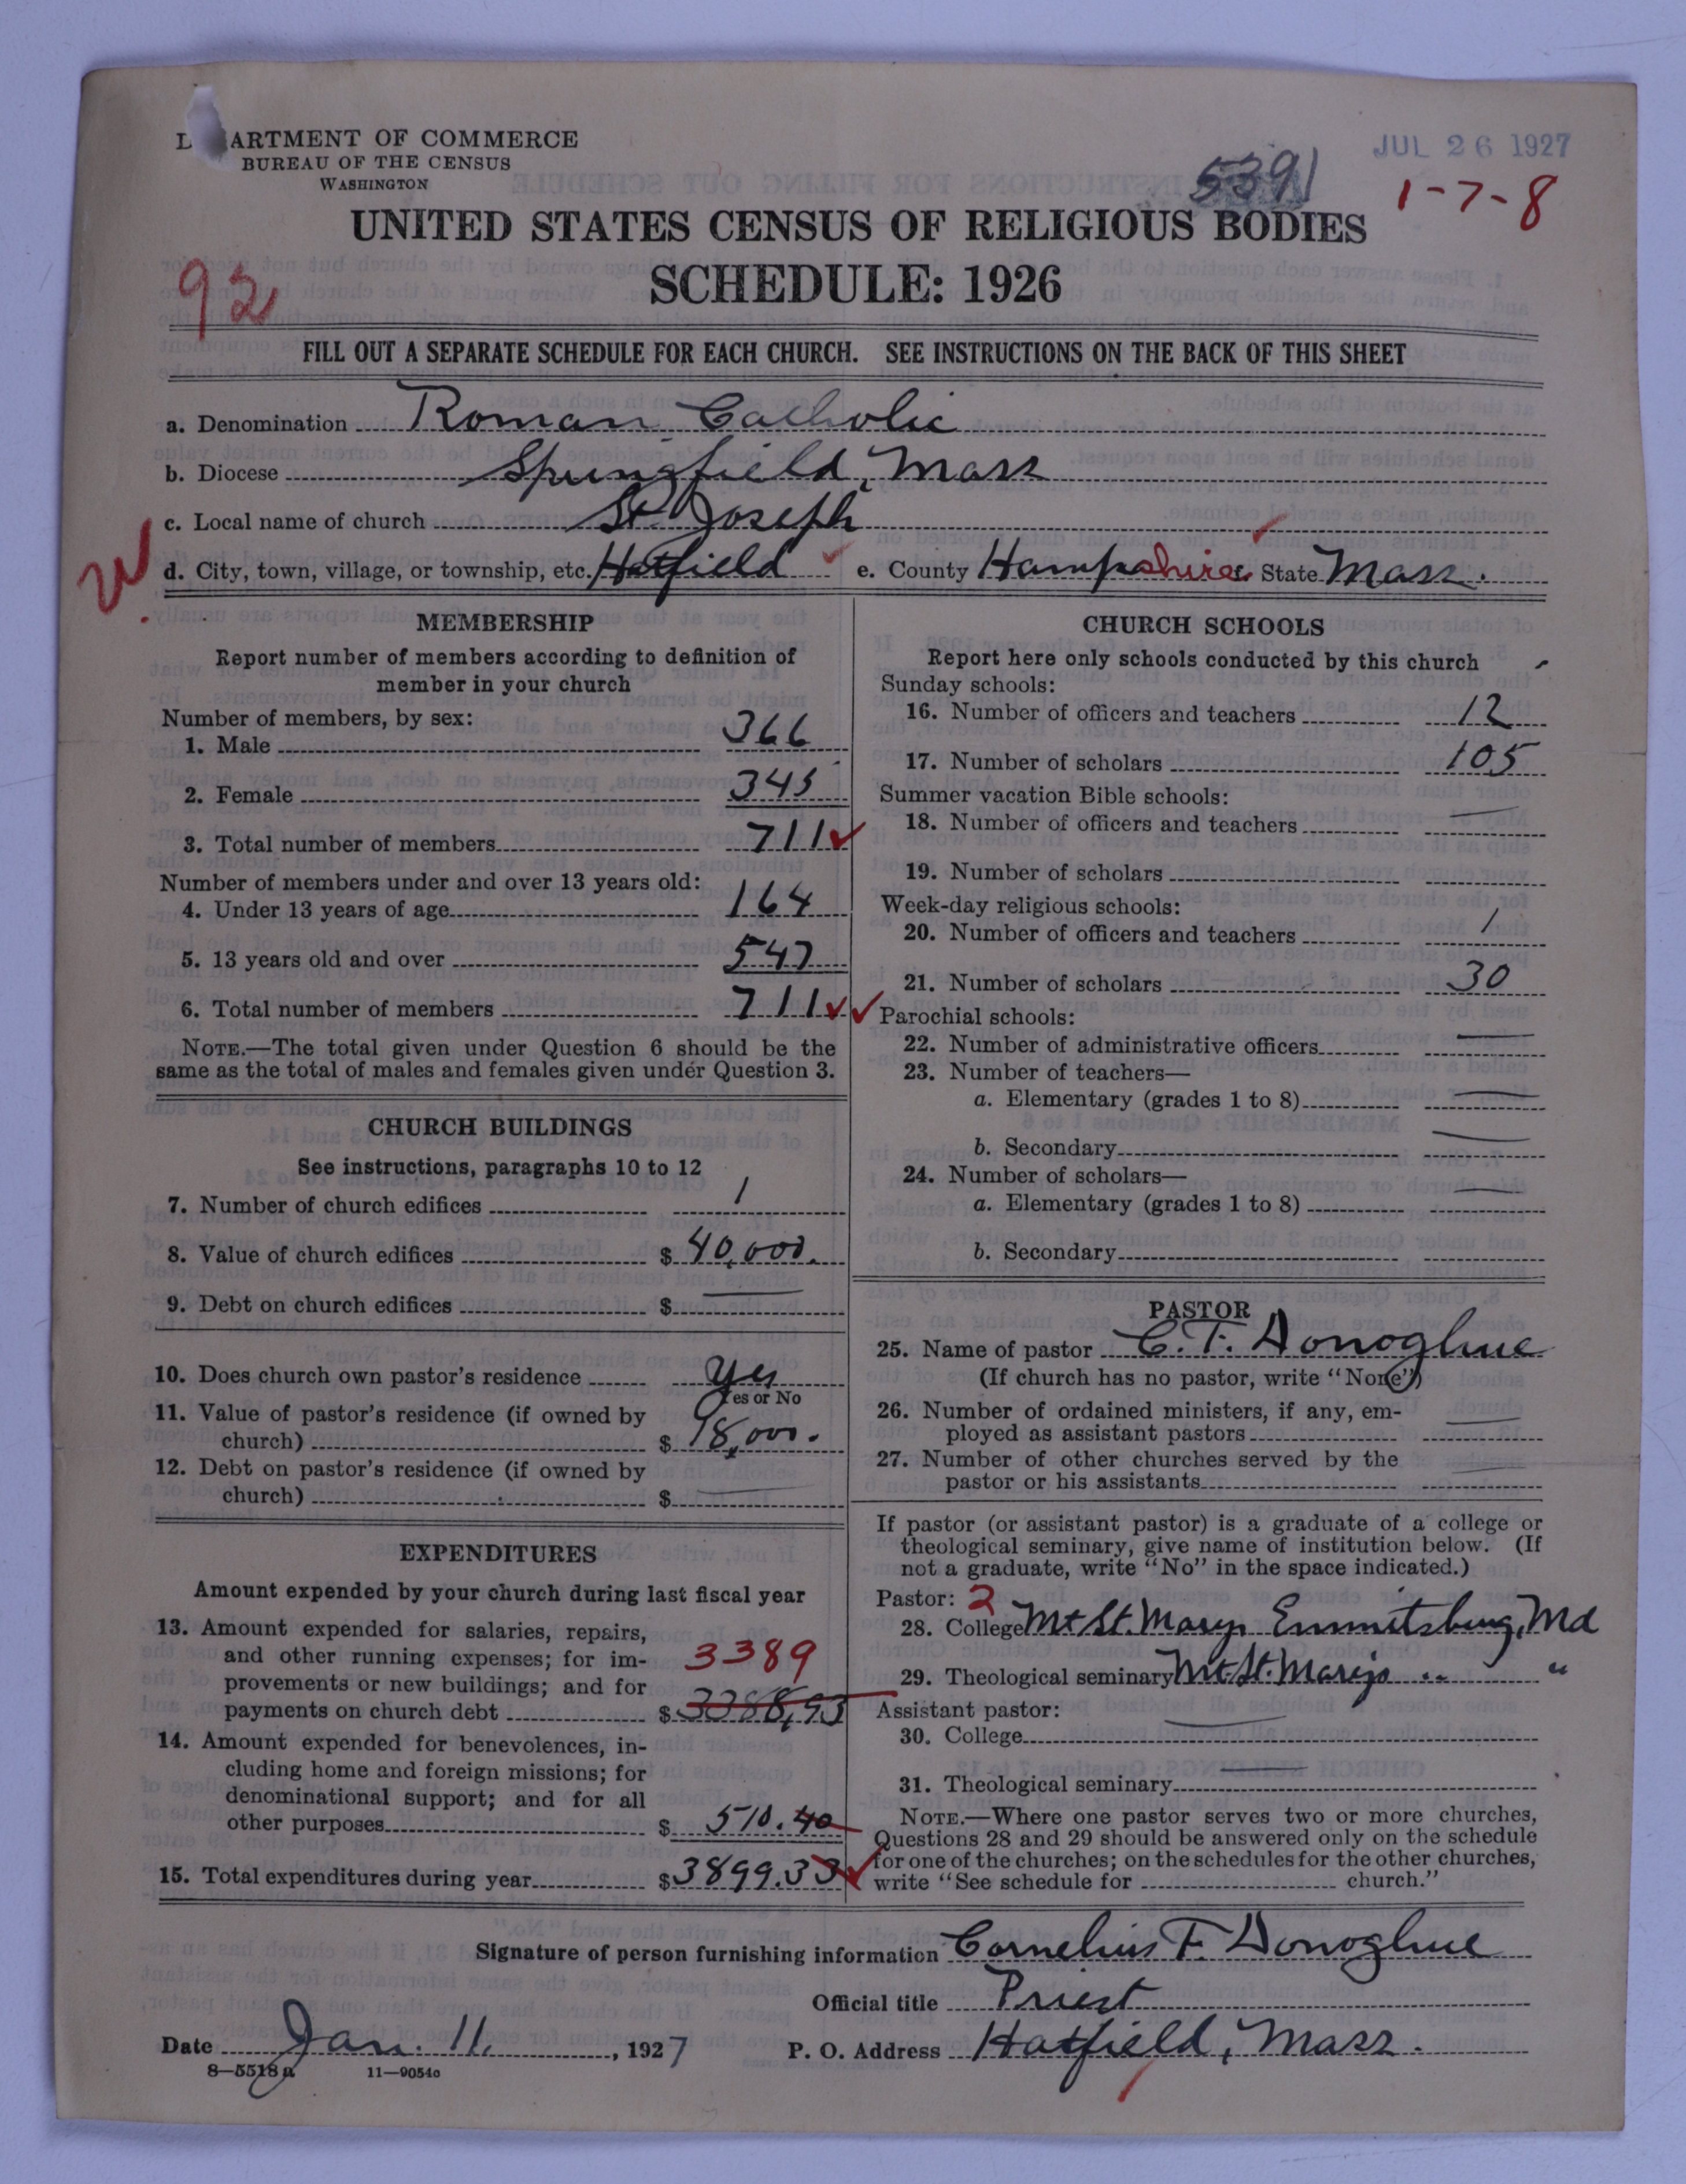 D ARTMENT OF COMMERCE
BUREAU OF THE CENSUS
WASHINGTON
JUL 26 1927
5391
1-7-8
UNITED STATES CENSUS OF RELIGIOUS BODIES
SCHEDULE: 1926
92
FILL OUT A SEPARATE SCHEDULE FOR EACH CHURCH. SEE INSTRUCTIONS ON THE BACK OF THIS SHEET
a. Denomination Roman Catholic
b. Diocese Springfield, Mass
c. Local name of church St. Joseph
d. City, town, village, or township, etc. Hatfield e. County Hampshire f. State Mass.
MEMBERSHIP
Report number of members according to definition of
member in your church
Number of members, by sex:
1. Male 366
2. Female 345
3. Total number of members 711
Number of members under and over 13 years old:
4. Under 13 years of age 164
5. 13 years old and over 547
6. Total number of members 711
NOTE.—The total given under Question 6 should be the
same as the total of males and females given under Question 3.
CHURCH BUILDINGS
See instructions, paragraphs 10 to 12
7. Number of church edifices 1
8. Value of church edifices $ 40,000.
9. Debt on church edifices $ —
10. Does church own pastor's residence Yes
Yes or No
11. Value of pastor's residence (if owned by
church) $ 18,000.
12. Debt on pastor's residence (if owned by
church) $ —
EXPENDITURES
Amount expended by your church during last fiscal year
13. Amount expended for salaries, repairs,
and other running expenses; for im- 3389
provements or new buildings; and for
payments on church debt $ 3388,93
14. Amount expended for benevolences, in-
cluding home and foreign missions; for
denominational support; and for all
other purposes $ 510.40
15. Total expenditures during year $ 3899.33
CHURCH SCHOOLS
Report here only schools conducted by this church
Sunday schools:
16. Number of officers and teachers 12
17. Number of scholars 105
Summer vacation Bible schools:
18. Number of officers and teachers —
19. Number of scholars
Week-day religious schools:
20. Number of officers and teachers 1
21. Number of scholars 30
Parochial schools:
22. Number of administrative officers —
23. Number of teachers—
a. Elementary (grades 1 to 8) —
b. Secondary —
24. Number of scholars—
a. Elementary (grades 1 to 8) —
b. Secondary
PASTOR
25. Name of pastor C. F. Donoghue
(If church has no pastor, write "None")
26. Number of ordained ministers, if any, em-
ployed as assistant pastors —
27. Number of other churches served by the
pastor or his assistants —
If pastor (or assistant pastor) is a graduate of a college or
theological seminary, give name of institution below. (If
not a graduate, write "No" in the space indicated.)
Pastor: 2
28. College Mt St. Marys Emmitsburg, Md
29. Theological seminary Mt St. Marys " "
Assistant pastor:
30. College —
31. Theological seminary —
NOTE.—Where one pastor serves two or more churches,
Questions 28 and 29 should be answered only on the schedule
for one of the churches; on the schedules for the other churches,
write "See schedule for church."
Signature of person furnishing information Cornelius F. Donoghue
Official title Priest
Date Jan. 11, 1927 P. O. Address Hatfield, Mass.
8—5518 a 11—9054c